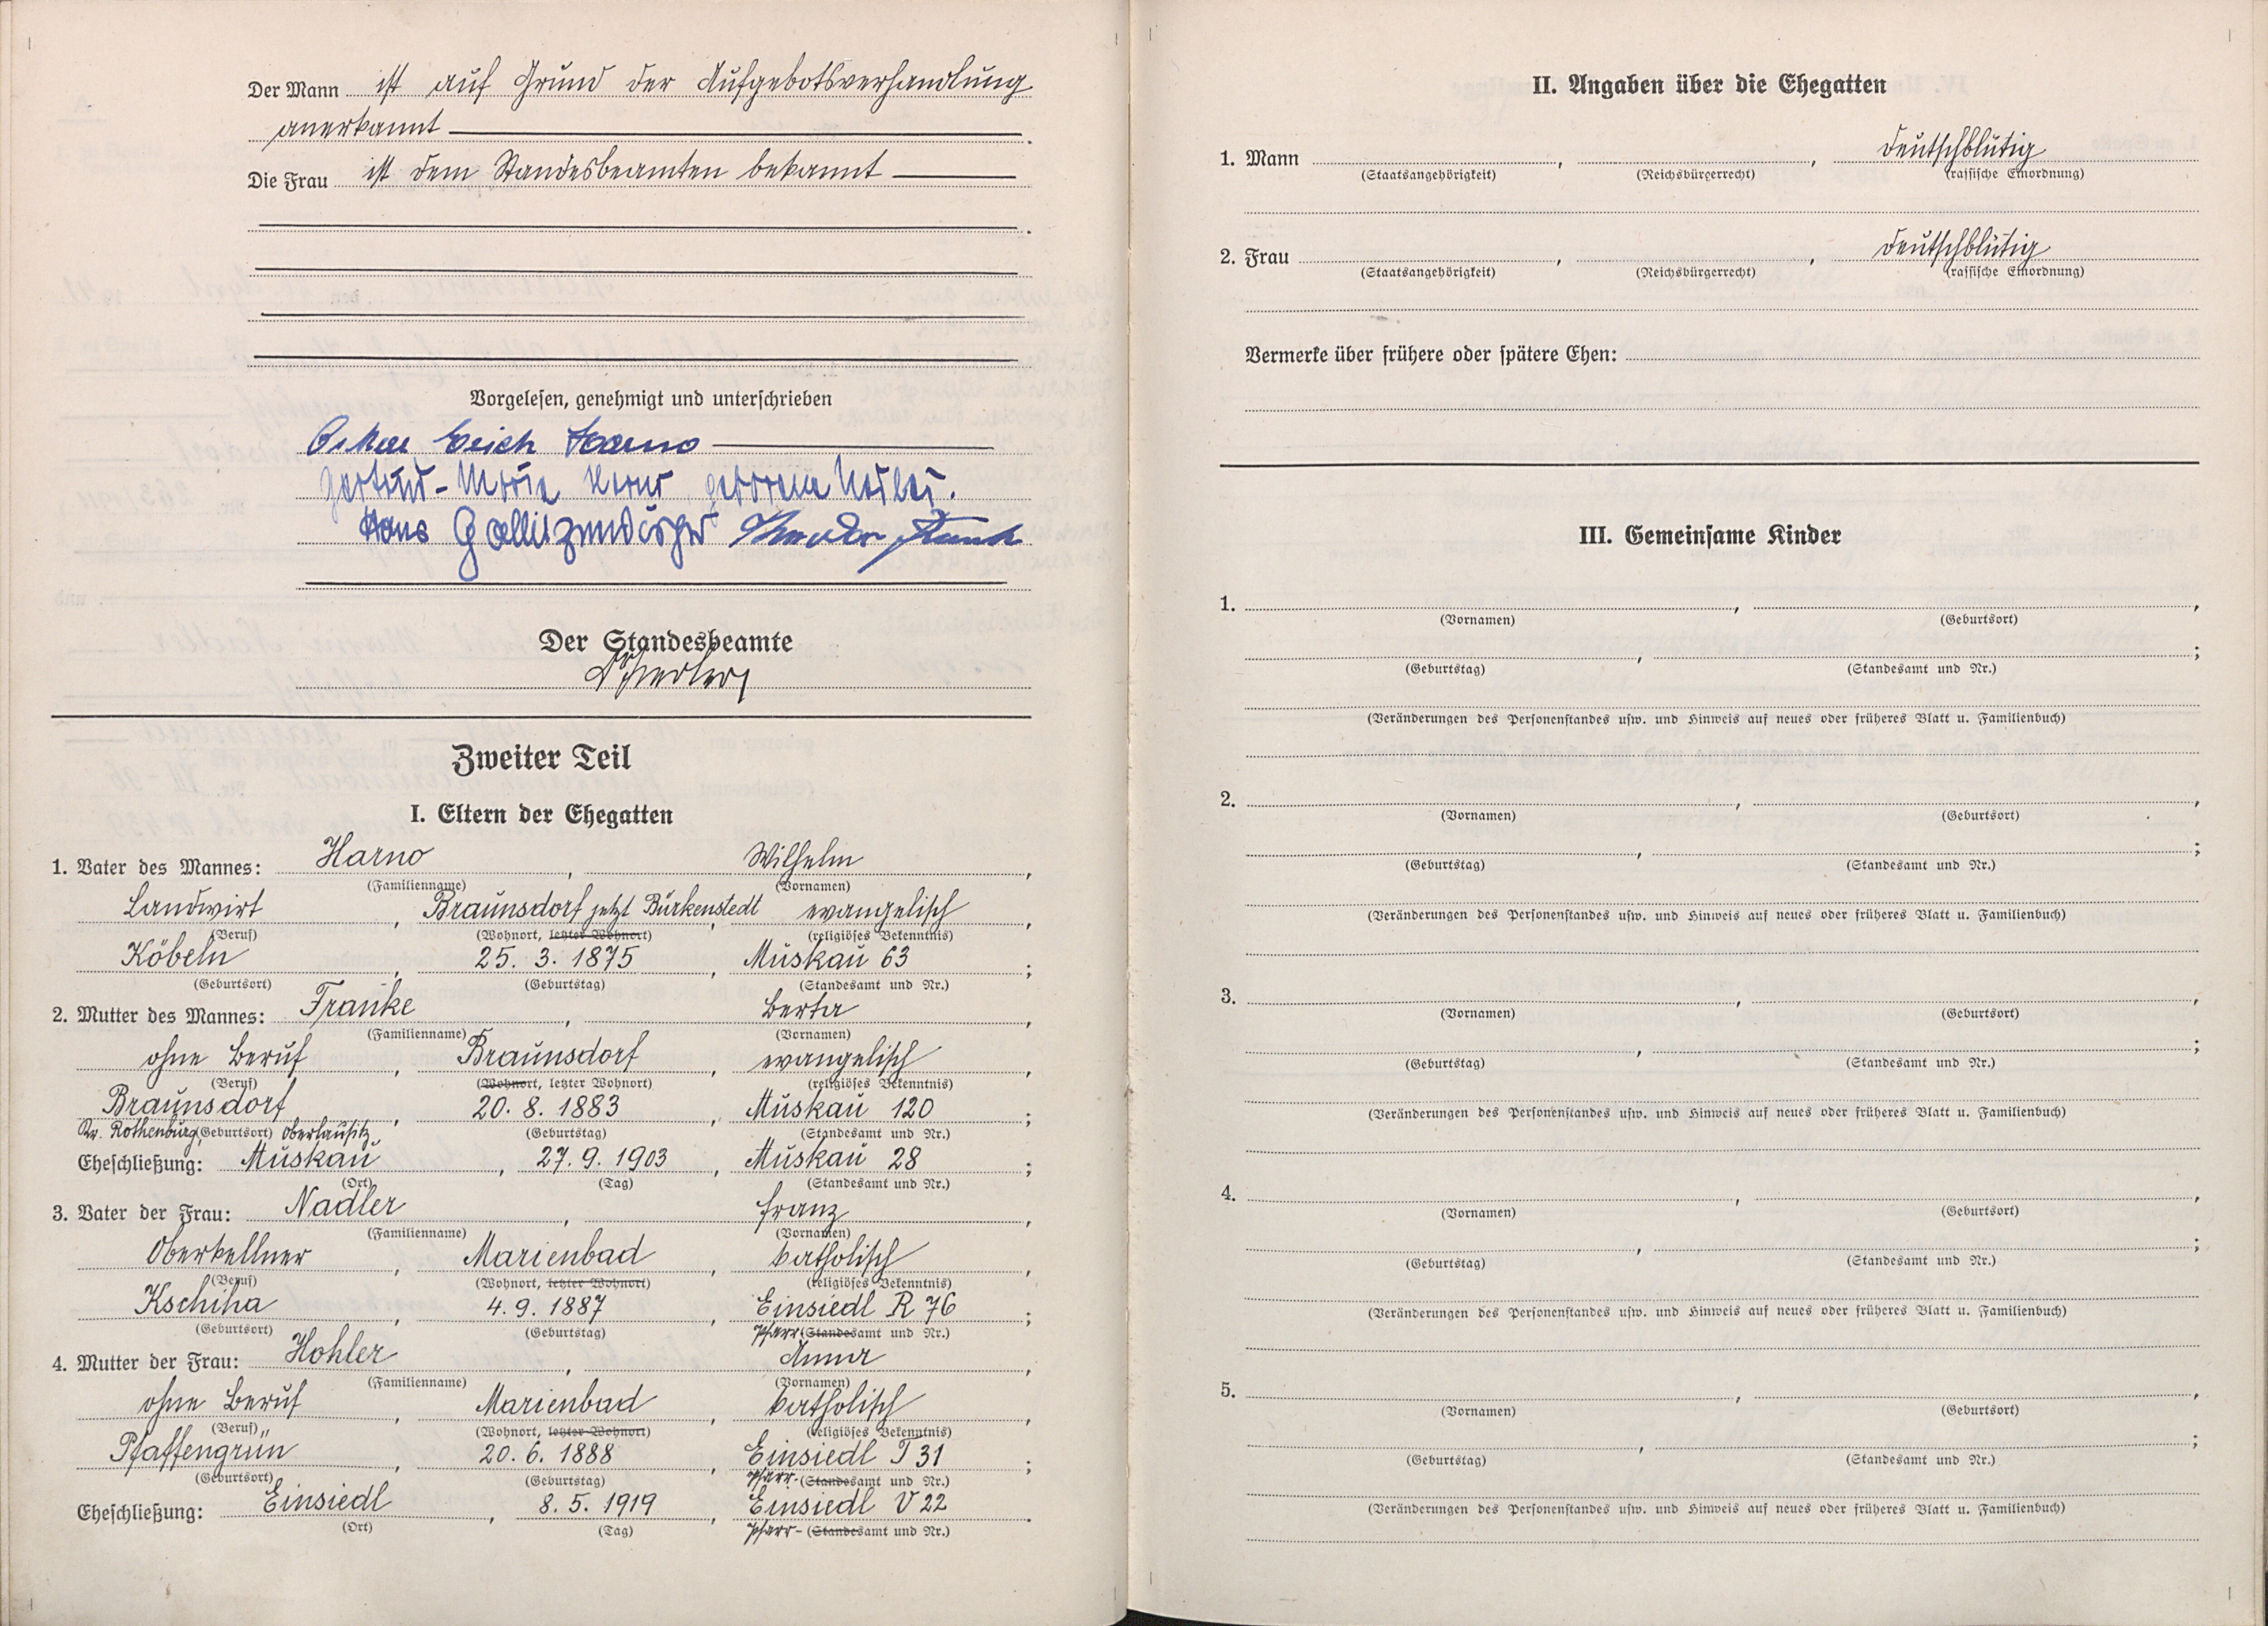 Der Mann ist auf Grund der Aufgebotsverhandlung
anerkannt
Die Frau ist dem Standesbeamten bekannt
Vorgelesen, genehmigt und unterschrieben
Oskar Erich Harno
Gertrud-Marie Harno geborene Nadler.
Hans
Der Standesbeamte
Zweiter Teil
I. Eltern der Ehegatten
1. Vater des Mannes: Harno, Wilhelm,
(Familienname) (Vornamen)
Landwirt, Braunsdorf jetzt Bürkenstedt, evangelisch,
(Beruf) (Wohnort, letzter Wohnort) (religiöses Bekenntnis)
Köbeln, 25. 3. 1875, Muskau 63;
(Geburtsort) (Geburtstag) (Standesamt und Nr.)
2. Mutter des Mannes: Franke, Berta,
(Familienname) (Vornamen)
ohne Beruf, Braunsdorf, evangelisch,
(Beruf) (Wohnort, letzter Wohnort) (religiöses Bekenntnis)
Braunsdorf, 20. 8. 1883, Muskau 120;
Kr. Rothenburg (Geburtsort) Oberlausitz (Geburtstag) (Standesamt und Nr.)
Eheschließung: Muskau, 27. 9. 1903, Muskau 28;
(Ort) (Tag) (Standesamt und Nr.)
3. Vater der Frau: Nadler, Franz,
(Familienname) (Vornamen)
Oberkellner, Marienbad, katholisch,
(Beruf) (Wohnort, letzter Wohnort) (religiöses Bekenntnis)
Kschiha, 4. 9. 1887, Einsiedl R 76;
(Geburtsort) (Geburtstag) Pfarr (Standesamt und Nr.)
4. Mutter der Frau: Hohler, Anna,
(Familienname) (Vornamen)
ohne Beruf, Marienbad, katholisch,
(Beruf) (Wohnort, letzter Wohnort) (religiöses Bekenntnis)
Pfaffengrün, 20. 6. 1888, Einsiedl T 31;
(Geburtsort) (Geburtstag) Pfarr- (Standesamt und Nr.)
Eheschließung: Einsiedl, 8. 5. 1919, Einsiedl V 22.
(Ort) (Tag) Pfarr- (Standesamt und Nr.)
II. Angaben über die Ehegatten
1. Mann , , deutschblütig
(Staatsangehörigkeit) (Reichsbürgerrecht) (rassische Einordnung)
2. Frau , , deutschblütig
(Staatsangehörigkeit) (Reichsbürgerrecht) (rassische Einordnung)
Vermerke über frühere oder spätere Ehen:
III. Gemeinsame Kinder
1. , ,
(Vornamen) (Geburtsort)
, ;
(Geburtstag) (Standesamt und Nr.)
(Veränderungen des Personenstandes usw. und Hinweis auf neues oder früheres Blatt u. Familienbuch)
2. , ,
(Vornamen) (Geburtsort)
, ;
(Geburtstag) (Standesamt und Nr.)
(Veränderungen des Personenstandes usw. und Hinweis auf neues oder früheres Blatt u. Familienbuch)
3. , ,
(Vornamen) (Geburtsort)
, ;
(Geburtstag) (Standesamt und Nr.)
(Veränderungen des Personenstandes usw. und Hinweis auf neues oder früheres Blatt u. Familienbuch)
4. , ,
(Vornamen) (Geburtsort)
, ;
(Geburtstag) (Standesamt und Nr.)
(Veränderungen des Personenstandes usw. und Hinweis auf neues oder früheres Blatt u. Familienbuch)
5. , ,
(Vornamen) (Geburtsort)
, ;
(Geburtstag) (Standesamt und Nr.)
(Veränderungen des Personenstandes usw. und Hinweis auf neues oder früheres Blatt u. Familienbuch)